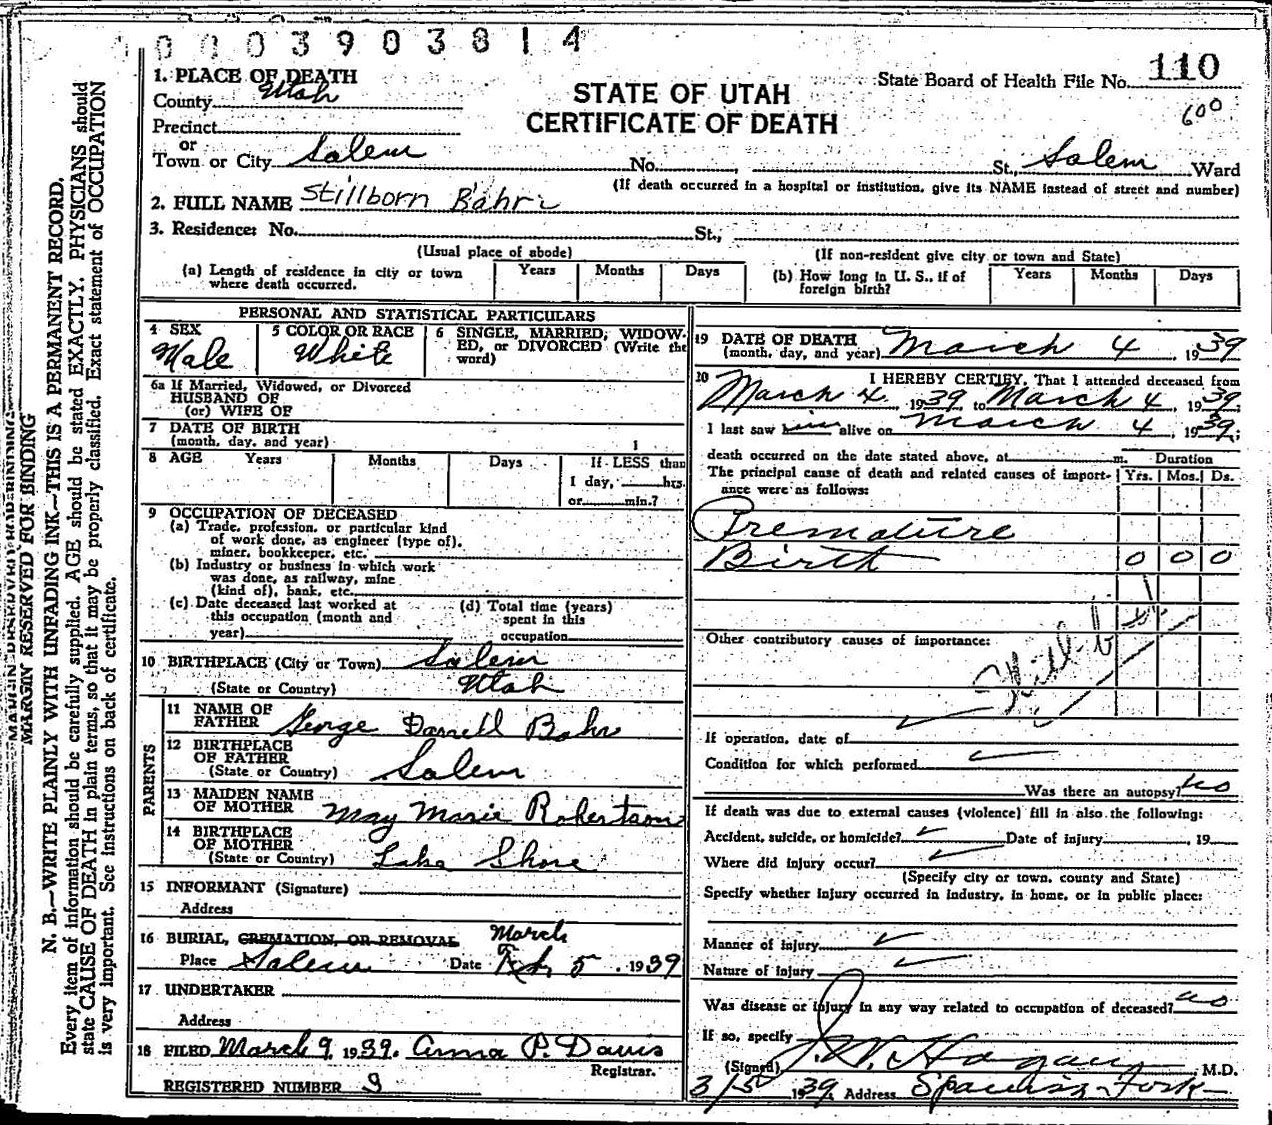 0003903814
110
State Board of Health File No.
600
STATE OF UTAH
CERTIFICATE OF DEATH
1. PLACE OF DEATH
County Utah
Precinct
or
Town or City Salem No. , St., Salem Ward
(If death occurred in a hospital or institution, give its NAME instead of street and number)
2. FULL NAME Stillborn Bahr
3. Residence: No. St.,
(Usual place of abode) (If non-resident give city or town and State)
(a) Length of residence in city or town where death occurred. Years Months Days
(b) How long in U. S., if of foreign birth? Years Months Days
PERSONAL AND STATISTICAL PARTICULARS
4 SEX Male
5 COLOR OR RACE White
6 SINGLE, MARRIED, WIDOW-
ED, or DIVORCED (Write the
word)
6a If Married, Widowed, or Divorced
HUSBAND OF
(or) WIFE OF
7 DATE OF BIRTH
(month, day, and year)
8 AGE Years Months Days If LESS than
1 day, hrs.
or min.?
9 OCCUPATION OF DECEASED
(a) Trade, profession, or particular kind
of work done, as engineer (type of),
miner, bookkeeper, etc.
(b) Industry or business in which work
was done, as railway, mine
(kind of), bank, etc.
(c) Date deceased last worked at
this occupation (month and
year)
(d) Total time (years)
spent in this
occupation
10 BIRTHPLACE (City or Town) Salem
(State or Country) Utah
PARENTS
11 NAME OF
FATHER George Darrell Bahr
12 BIRTHPLACE
OF FATHER
(State or Country) Salem
13 MAIDEN NAME
OF MOTHER May Marie Robertson
14 BIRTHPLACE
OF MOTHER
(State or Country) Lake Shore
15 INFORMANT (Signature)
Address
16 BURIAL, CREMATION, OR REMOVAL March
Place Salem Date 5, 1939
17 UNDERTAKER
Address
18 FILED March 9, 1939. Anna P. Davis
Registrar.
REGISTERED NUMBER 9
19 DATE OF DEATH
(month, day, and year) March 4, 1939
20 I HEREBY CERTIFY, That I attended deceased from
March 4, 1939, to March 4, 1939;
I last saw him alive on March 4, 1939;
death occurred on the date stated above, at m. Duration
The principal cause of death and related causes of import-
ance were as follows: Yrs. Mos. Ds.
Premature
Birth 0 0 0
Other contributory causes of importance:
Still-b
If operation, date of
Condition for which performed
Was there an autopsy? no
If death was due to external causes (violence) fill in also the following:
Accident, suicide, or homicide? Date of injury , 19
Where did injury occur?
(Specify city or town, county and State)
Specify whether injury occurred in industry, in home, or in public place:
Manner of injury
Nature of injury
Was disease or injury in any way related to occupation of deceased? no
If so, specify
(Signed) Hagan, M.D.
3/5 1939. Address Spanish Fork
MARGIN RESERVED FOR BINDING
N. B.—WRITE PLAINLY WITH UNFADING INK—THIS IS A PERMANENT RECORD.
Every item of information should be carefully supplied. AGE should be stated EXACTLY. PHYSICIANS should
state CAUSE OF DEATH in plain terms, so that it may be properly classified. Exact statement of OCCUPATION
is very important. See instructions on back of certificate.